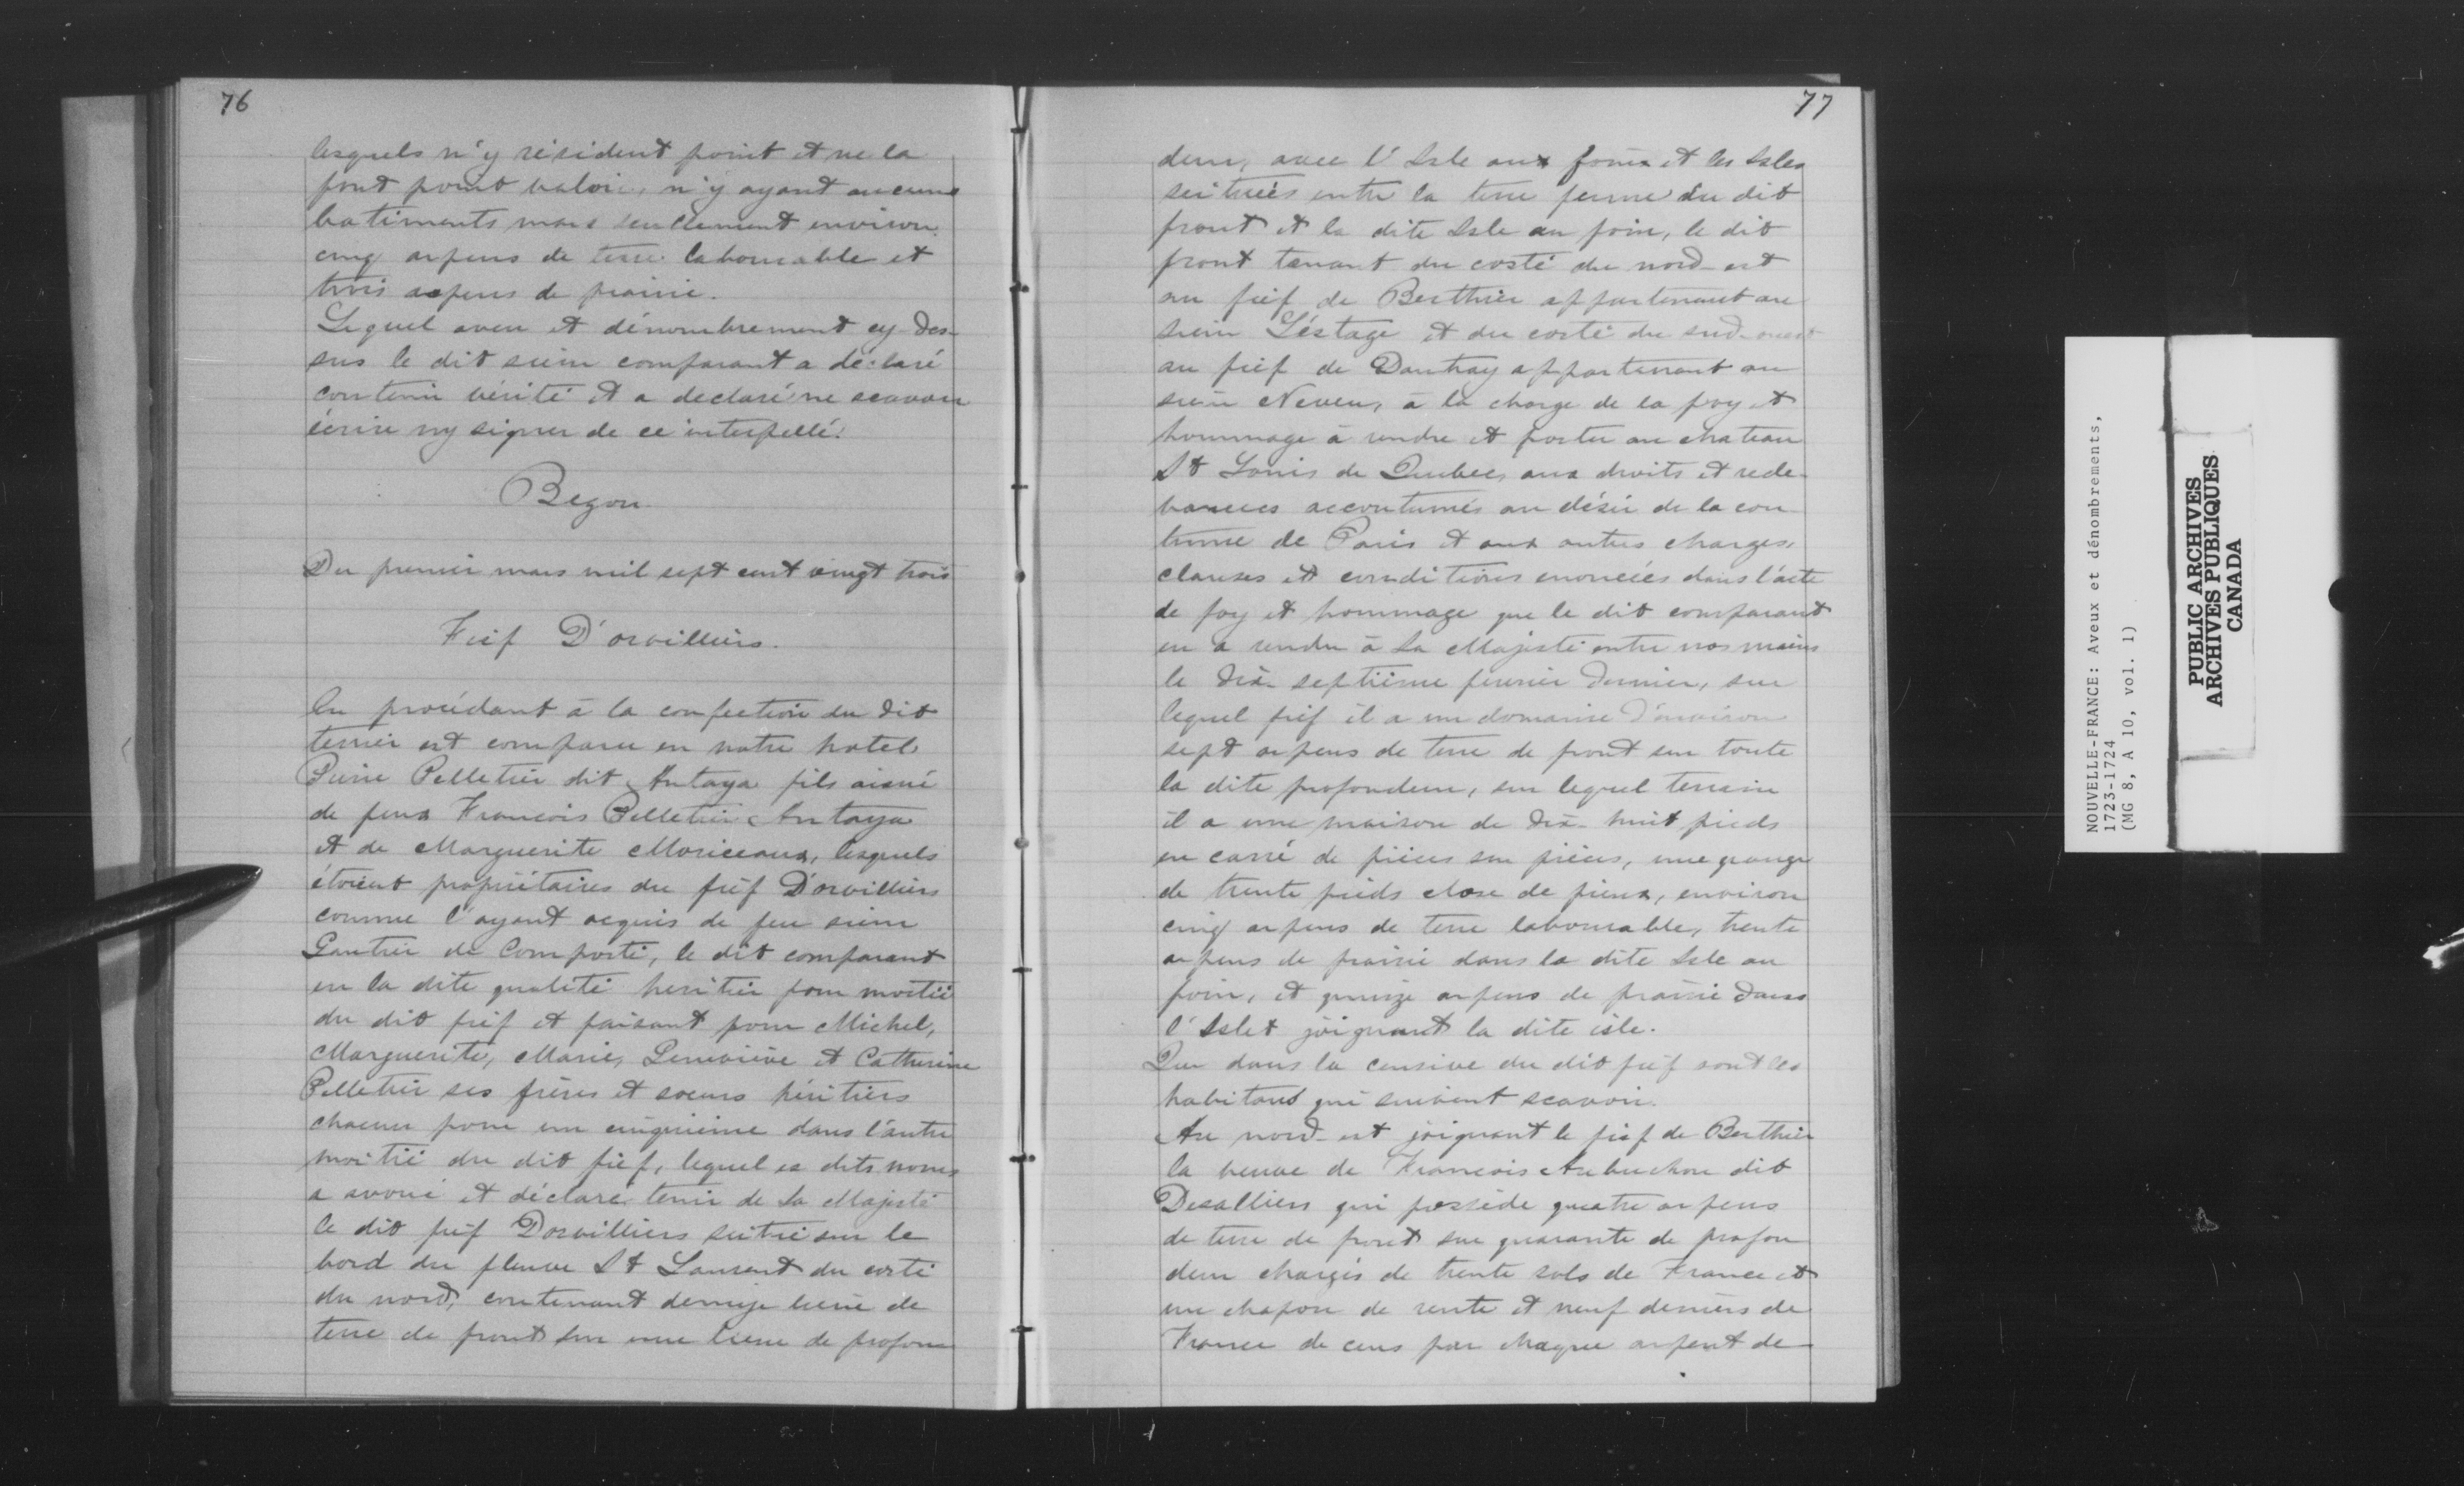 76
lesquels n'y résident point et ne la
font point valoir, n'y ayant aucuns
batiments mais seullement environ
cinq arpens de terre labourable et
trois arpens de prairie.
Lequel aveu et dénombrement cy-des-
sus le dit sieur comparant a déclaré
contenir vérité et a declaré ne scavoir
écrire ny signer de ce interpellé.
Begon
Du premier mars mil sept cent vingt trois
Fief D'orvilliers.
En procédant à la confection du dit
terrier est comparu en notre hotel
Pierre Pelletier dit Antaya fils aisné
de feux Francois Pelletier Antaya
et de Marguerite Moriceaux, lesquels
étoient propriétaires du fief D'orvilliers
comme l'ayant acquis de feu sieur
Gautier de Comporté, le dit comparant
en la dite qualité heritier pour moitié
du dit fief et faisant pour Michel,
Marguerite, Marie, Geneviève et Catherine
Pelletier ses frères et soeurs héritiers
chacun pour un cinquième dans l'autre
moitié du dit fief, lequel es dits noms
a avoué et déclaré tenir de Sa Majesté
le dit fief Dorvilliers scitué sur le
bord du fleuve St Laurent du costé
du nord, contenant demije lieue de
terre de front sur une lieue de profon
77
deur, avec l'Isle aux foins et les Isles
scituées entre la terre ferme du dit
front et la dite Isle au foin, le dit
front tenant du costé du nord-est
au fief de Berthier appartenant au
sieur Léstage et du costé du sud-ouest
au fief de Dautray appartenant au
sieur Neveu, à la charge de la foy et
hommage à rendre et porter au chateau
St Louis de Quebec, aux droits et rede-
vances accoutumés au désir de la cou
tume de Paris et aux autres charges,
clauses et conditions enoncées dans l'acte
de foy et hommage que le dit comparant
en a rendu à Sa Majesté entre nos mains
le dix-septième fevrier dernier, sur
lequel fief il a un domaine d'environ
sept arpens de terre de front sur toute
la dite profondeur, sur lequel terrain
il a une maison de dix-huit pieds
en carré de pièces sur pièces, une grange
de trente pieds close de pieux, environ
cinq arpens de terre labourable, trente
arpens de prairie dans la dite Isle au
foin, et quinze arpens de prairie dans
l'Islet joignant la dite isle.
Que dans la censive du dit fief sont les
habitans qui suivent scavoir.
Au nord-est joignant le fief de Berthier
la veuve de Francois Aubuchon dit
Desalliers qui possède quatre arpens
de terre de front sur quarante de profon
deur chargés de trente sols de France et
un chapon de rente et neuf deniers de
France de cens par chaque arpent de
NOUVELLE-FRANCE: Aveux et dénombrements,
1723-1724
(MG 8, A 10, vol. 1)
PUBLIC ARCHIVES
ARCHIVES PUBLIQUES
CANADA